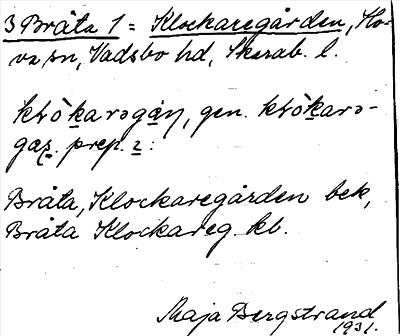 3 Bråta 1 = Klockaregården, Ho-
va sn, Vadsbo hd, Skarab. l.
kłòkarəgạṇ, gen. kłòkarə-
gaṣ. prep. 2:
Bråta, Klockaregården bek,
Bråta Klockareg kl.
Maja Bergstrand
1931.